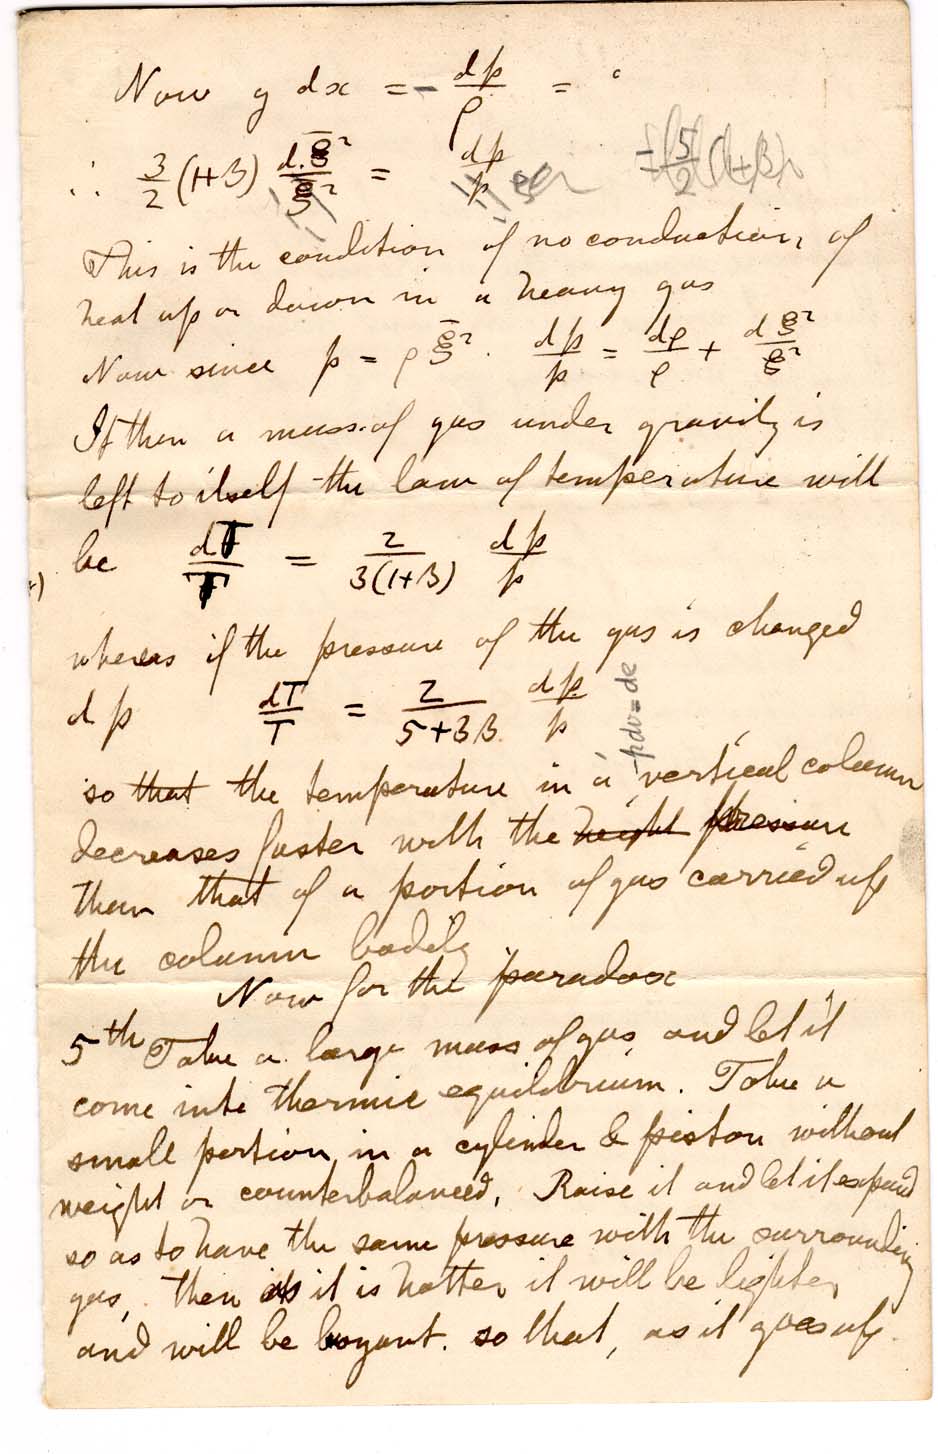 Now g dx = - dp/ρ =
∴ 3/2 (1+β) d.ξ̄²/ξ̄² = dp/p = 5/2 (1+β)
This is the condition of no conduction of
heat up or down in a heavy gas
Now since p = ρ ξ̄². dp/p = dρ/ρ + dξ̄²/ξ̄²
If then a mass of gas under gravity is
left to itself the law of temperature will
be dT/T = 2/3(1+β) dp/p
whereas if the pressure of the gas is changed
dp dT/T = 2/5+3β dp/p
-pdv=de
so that the temperature in a vertical column
decreases faster with the height pressure
than that of a portion of gas carried up
the column bodily
Now for the paradox
5th Take a large mass of gas and let it
come into thermic equilibrium. Take a
small portion in a cylinder & piston without
weight or counterbalanced, Raise it and let it expand
so as to have the same pressure with the surrounding
gas, then as it is hotter it will be lighter
and will be buoyant. so that, as it goes up